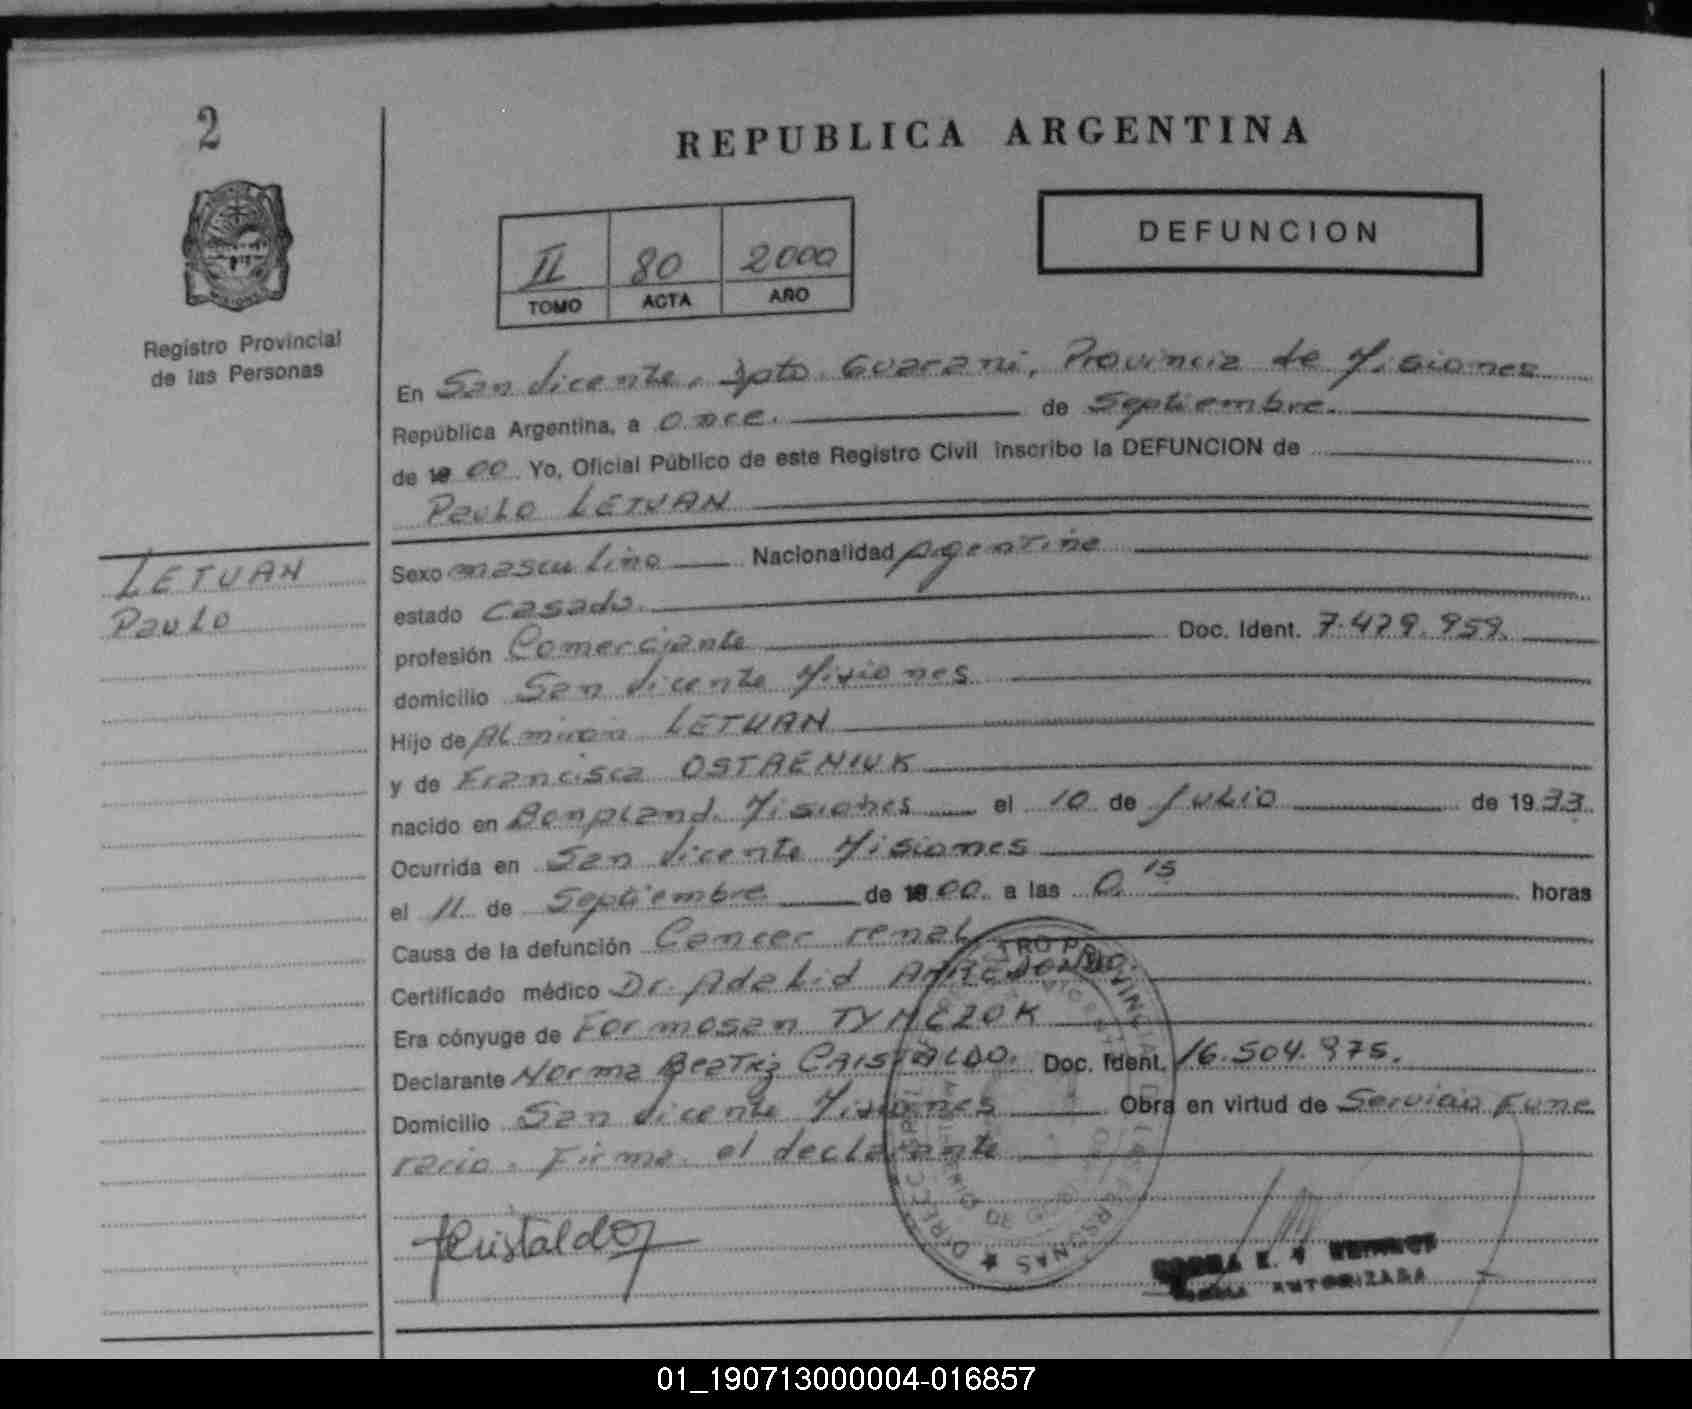 2
REPUBLICA ARGENTINA
DEFUNCION
II 80 2000
TOMO ACTA AÑO
Registro Provincial
de las Personas
En San Vicente, Dpto. Guarani, Provincia de Misiones
República Argentina, a once. de Septiembre.
de 19 00. Yo, Oficial Público de este Registro Civil inscribo la DEFUNCION de
Paulo LETUAN
LETUAN
Paulo
Sexo masculino Nacionalidad Argentina
estado casado.
profesión Comerciante Doc. Ident. 7.479.959.
domicilio San Vicente Misiones
Hijo de LETUAN
y de Francisca OSTAENIUK
nacido en Bonpland. Misiones el 10 de Julio de 1933.
Ocurrida en San Vicente Misiones
el 11 de Septiembre de 19 00. a las 0.15 horas
Causa de la defunción Cancer renal
Certificado médico Dr. Adalid ARREDONDO.
Era cónyuge de Formosan TYMCZOK
Declarante Norma Beatriz CRISTALDO. Doc. Ident. 16.504.975.
Domicilio San Vicente Misiones Obra en virtud de Servicio Fune
rario. Firma el declarante
Cristaldo
AUTORIZADA
01_190713000004-016857